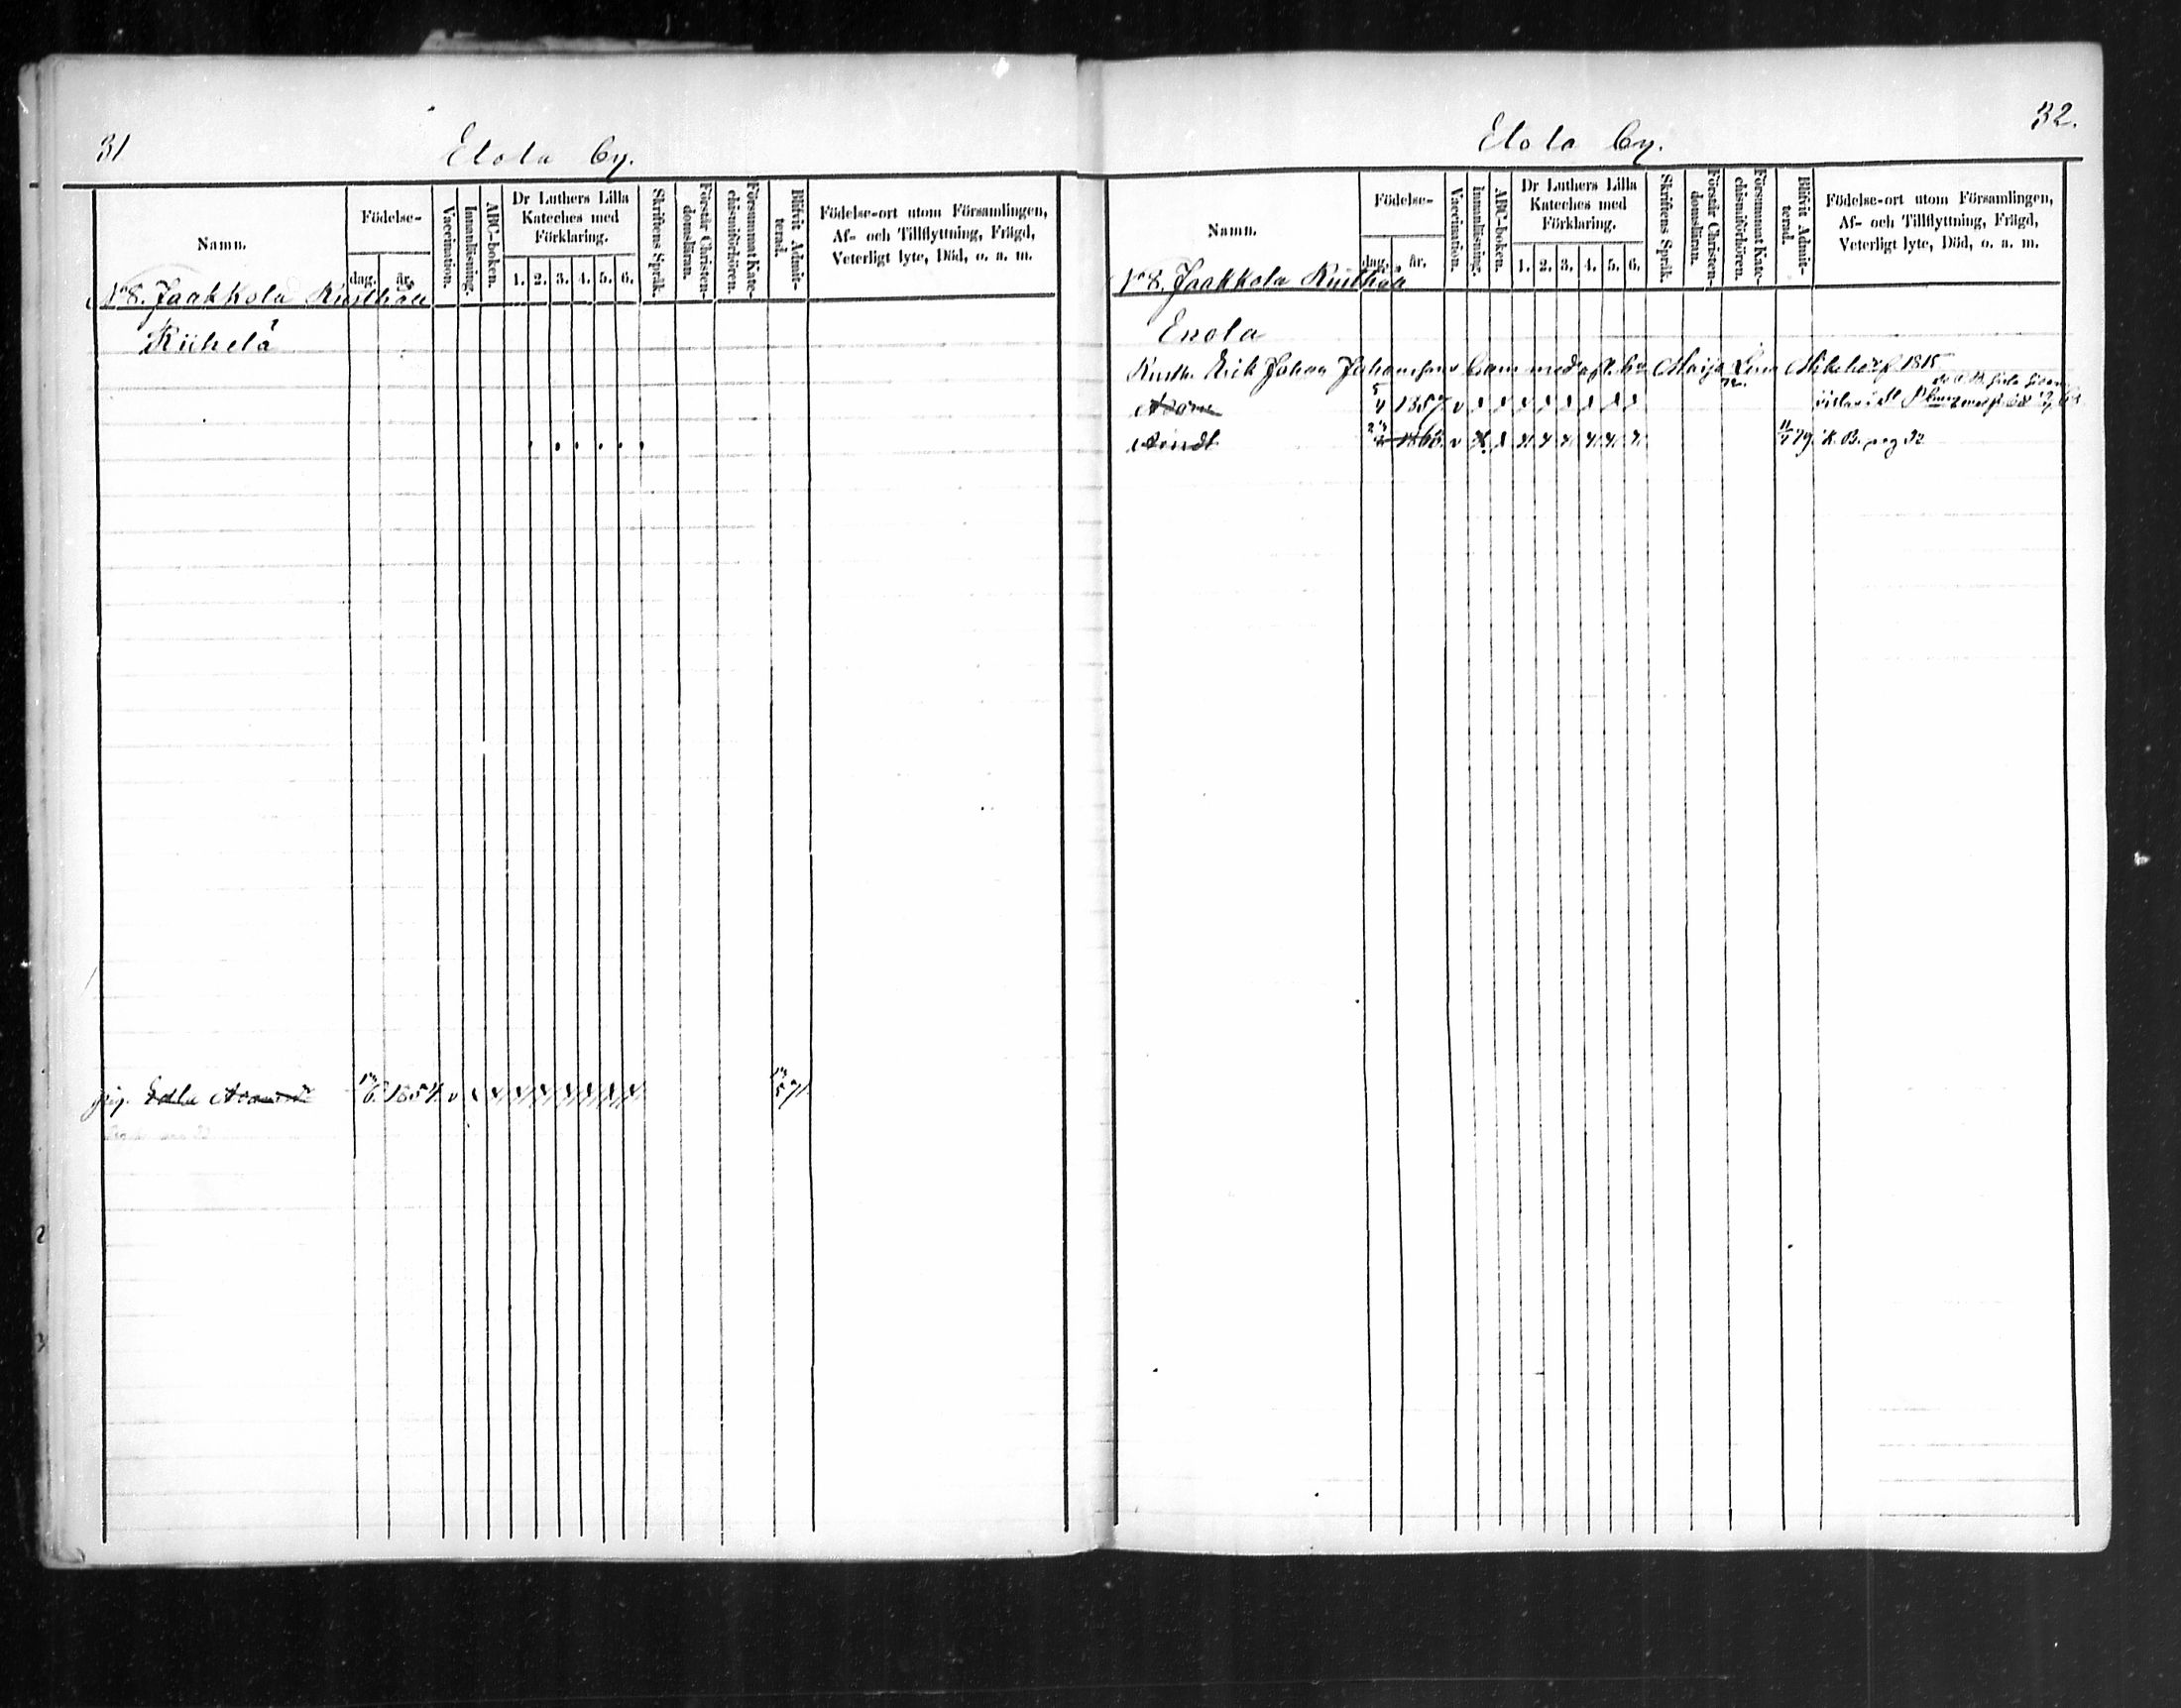 31
Elola by.
Namn.
Födelse-
dag. år.
Vaccination.
Innanläsning.
ABC-boken.
Dr Luthers Lilla
Kateches med
Förklaring.
1. 2. 3. 4. 5. 6.
Skriftens Språk.
Förstår Christen-
domsläran.
Försummat Kate-
chismiförhören.
Blifvit Admit-
terad.
Födelse-ort utom Församlingen,
Af- och Tillflyttning, Frägd,
Veterligt lyte, Död, o. a. m.
No 8. Jaakkola Rusthåll
Riihelä
Edla 1854. v
32.
Elola by.
Namn.
Födelse-
dag. år.
Vaccination.
Innanläsning.
ABC-boken.
Dr Luthers Lilla
Kateches med
Förklaring.
1. 2. 3. 4. 5. 6.
Skriftens Språk.
Förstår Christen-
domsläran.
Försummat Kate-
chismiförhören.
Blifvit Admit-
terad.
Födelse-ort utom Församlingen,
Af- och Tillflyttning, Frägd,
Veterligt lyte, Död, o. a. m.
No 8. Jaakkola Rusthåll
Enola
Rusth. Erik Johan Johansson barn med Maija Lena 1815
Adam 1857 v
79 K. B. pag 32